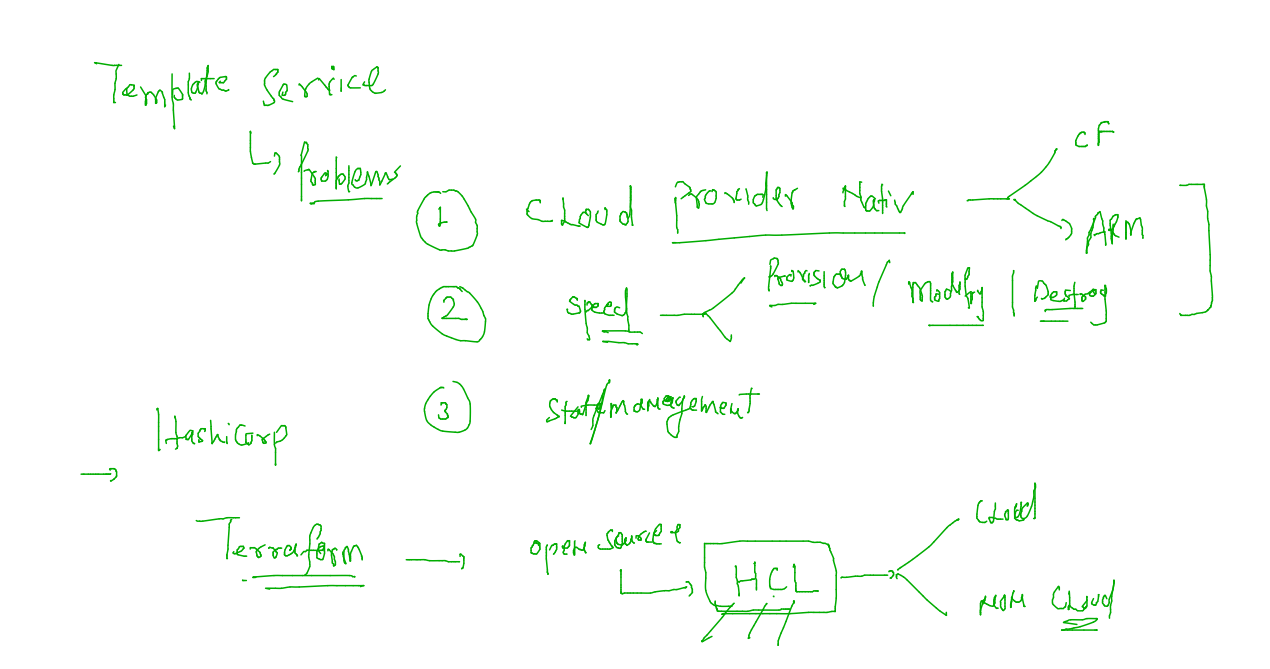 Template Service
Problems
1 Cloud Provider Nativ
CF
ARM
2 Speed Provision / Modify | Destroy
3 State management
Hashicorp
Terraform open source
HCL
Cloud
non Cloud